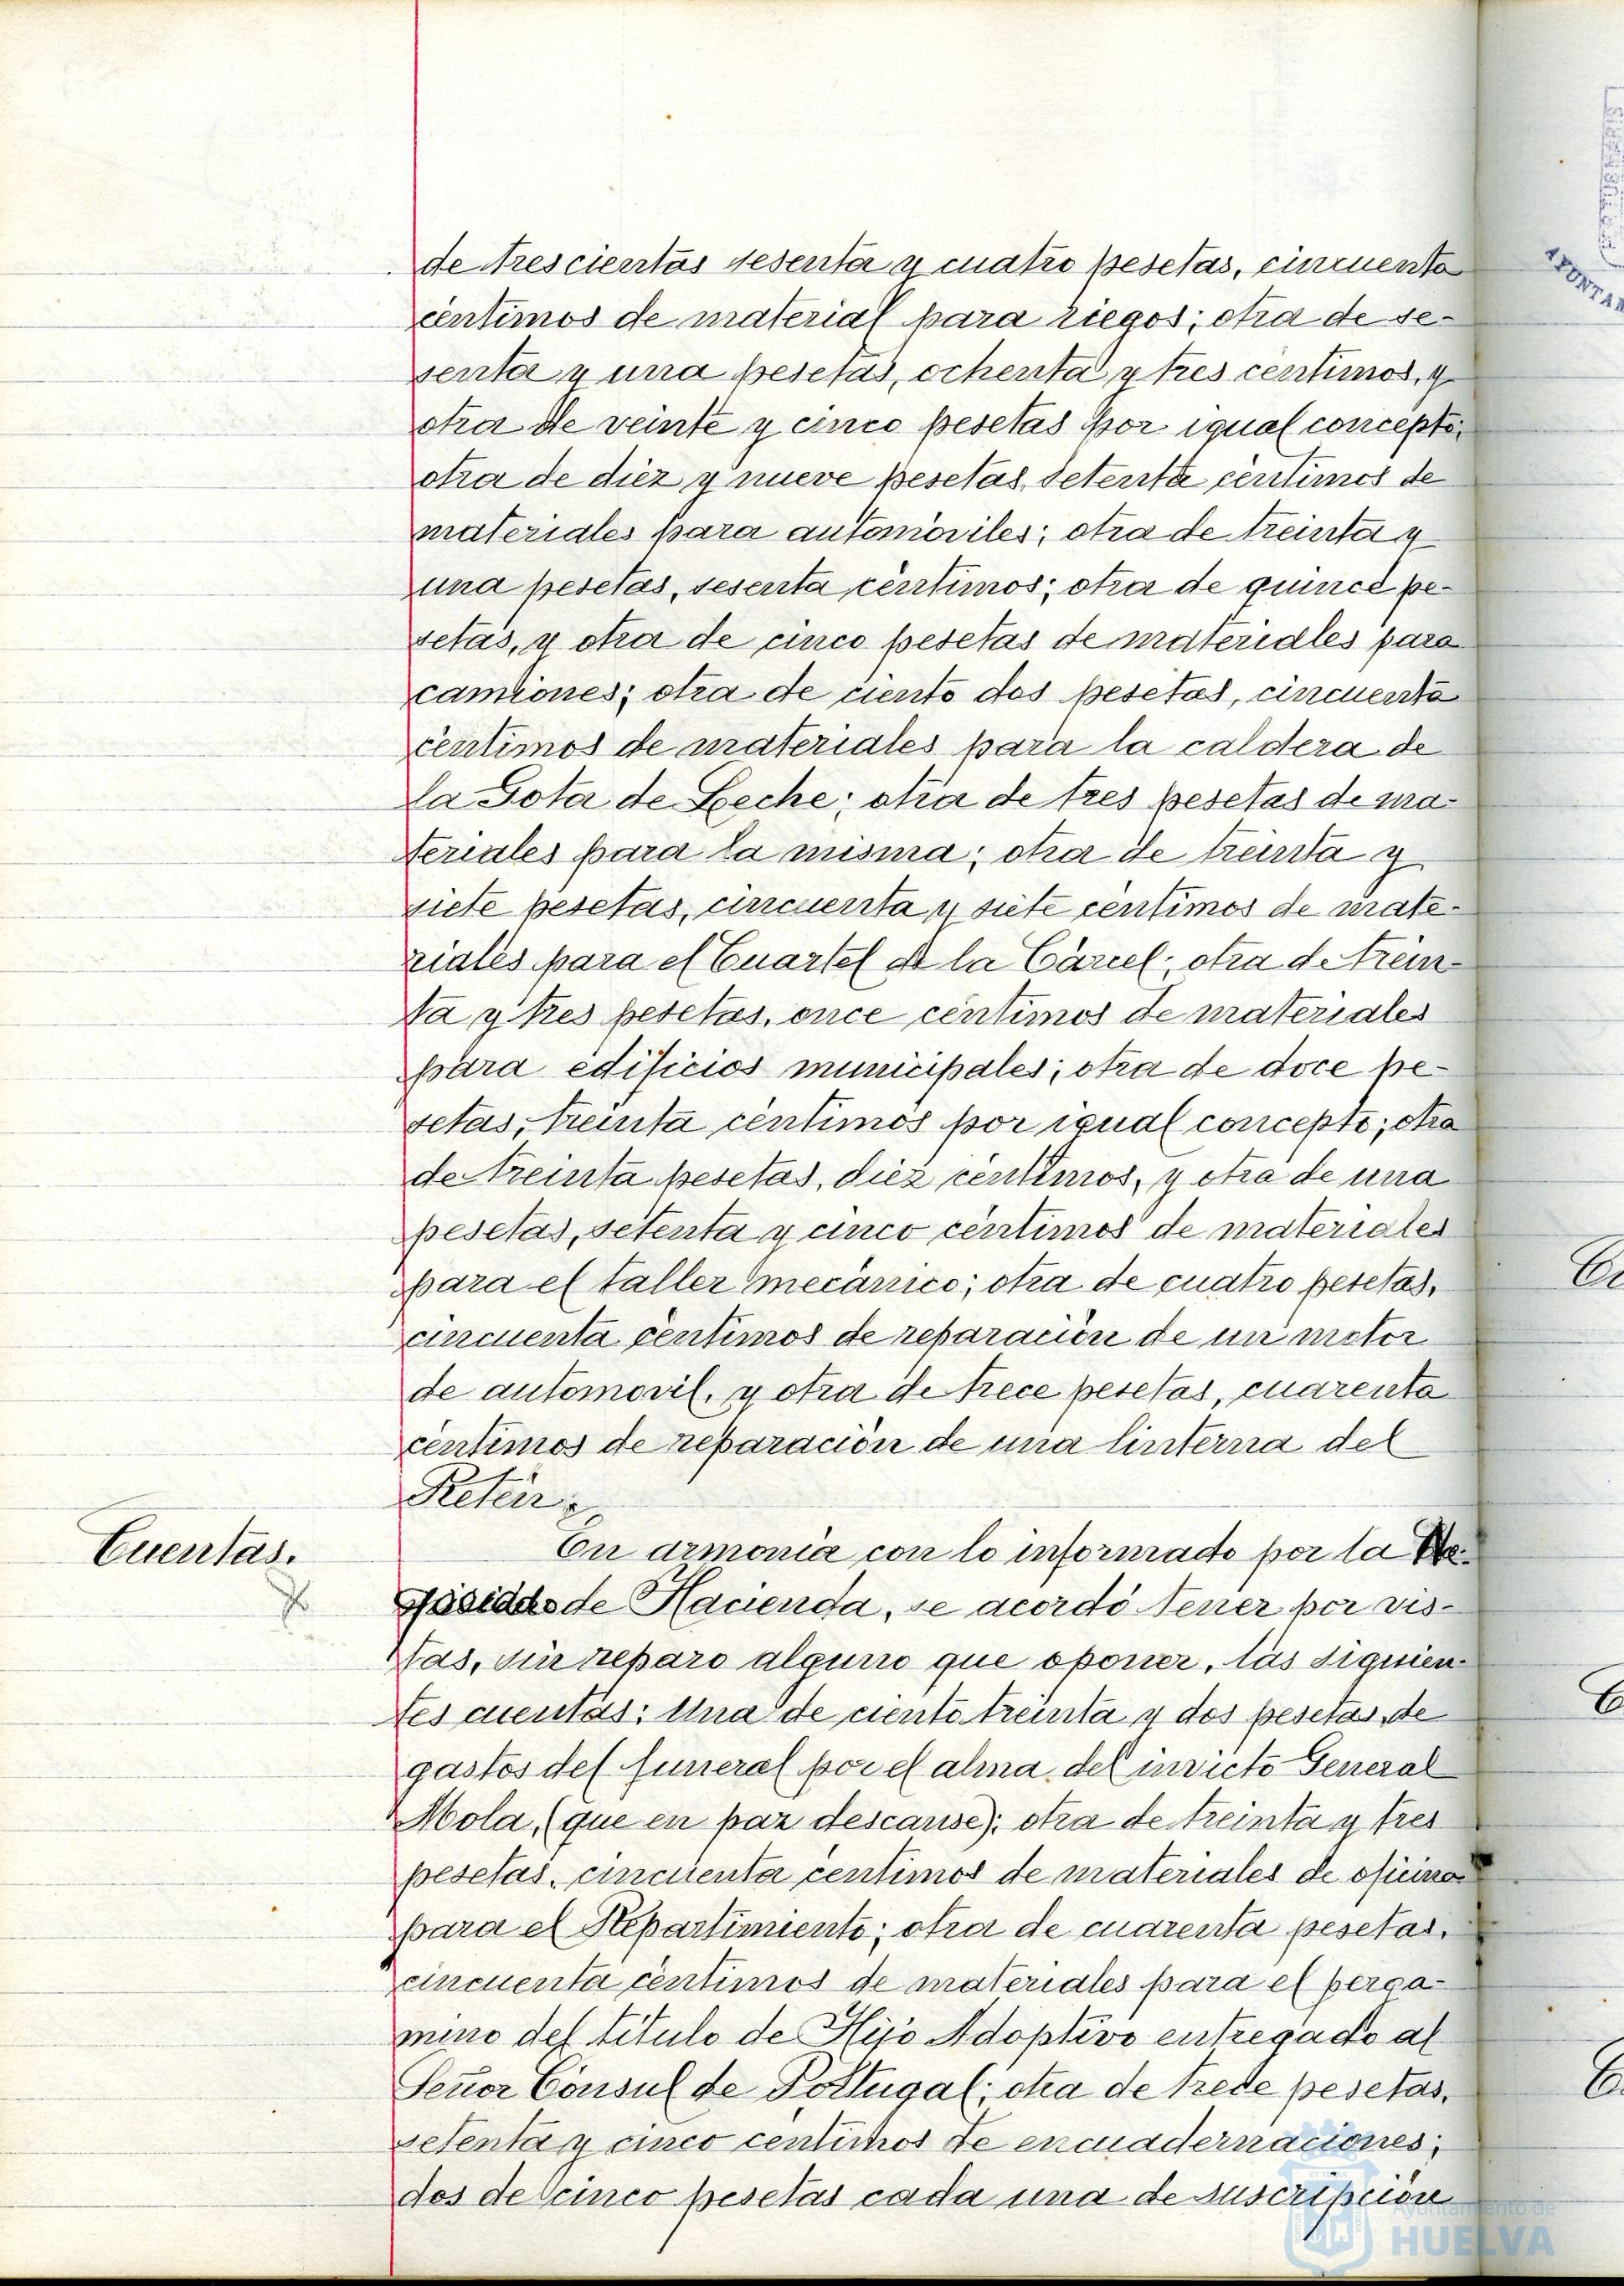 de trescientas sesenta y cuatro pesetas, cincuenta
céntimos de material para riegos; otra de se-
senta y una pesetas, ochenta y tres centimos, y
otra de veinte y cinco pesetas por igual concepto;
otra de diez y nueve pesetas, setenta centimos de
materiales para automóviles; otra de treinta y
una pesetas, sesenta céntimos; otra de quince pe-
setas, y otra de cinco pesetas de materiales para
camiones; otra de ciento dos pesetas, cincuenta
céntimos de materiales para la caldera de
la Gota de Leche; otra de tres pesetas de ma-
teriales para la misma; otra de treinta y
siete pesetas, cincuenta y siete centimos de mate-
riales para el Cuartel de la Cárcel; otra de trein-
ta y tres pesetas, once céntimos de materiales
para edificios municipales; otra de doce pe-
setas, treinta céntimos por igual concepto; otra
de treinta pesetas, diez centimos, y otra de una
pesetas, setenta y cinco céntimos de materiales
para el taller mecánico; otra de cuatro pesetas,
cincuenta centimos de reparación de un motor
de automovil, y otra de trece pesetas, cuarenta
céntimos de reparación de una linterna del
Retén.
Cuentas.
En armonia con lo informado por la
de Hacienda, se acordó tener por vis-
tas, sin reparo alguno que oponer, las siguien-
tes cuentas: Una de ciento treinta y dos pesetas, de
gastos del funeral por el alma del invicto General
Mola, (que en paz descanse); otra de treinta y tres
pesetas, cincuenta centimos de materiales de oficina
para el Repartimiento; otra de cuarenta pesetas,
cincuenta céntimos de materiales para el perga-
mino del título de Hijo Adoptivo entregado al
Señor Cónsul de Portugal; otra de trece pesetas,
setenta y cinco centimos de encuadernaciones;
dos de cinco pesetas cada una de suscripción
Ayuntamiento de
HUELVA